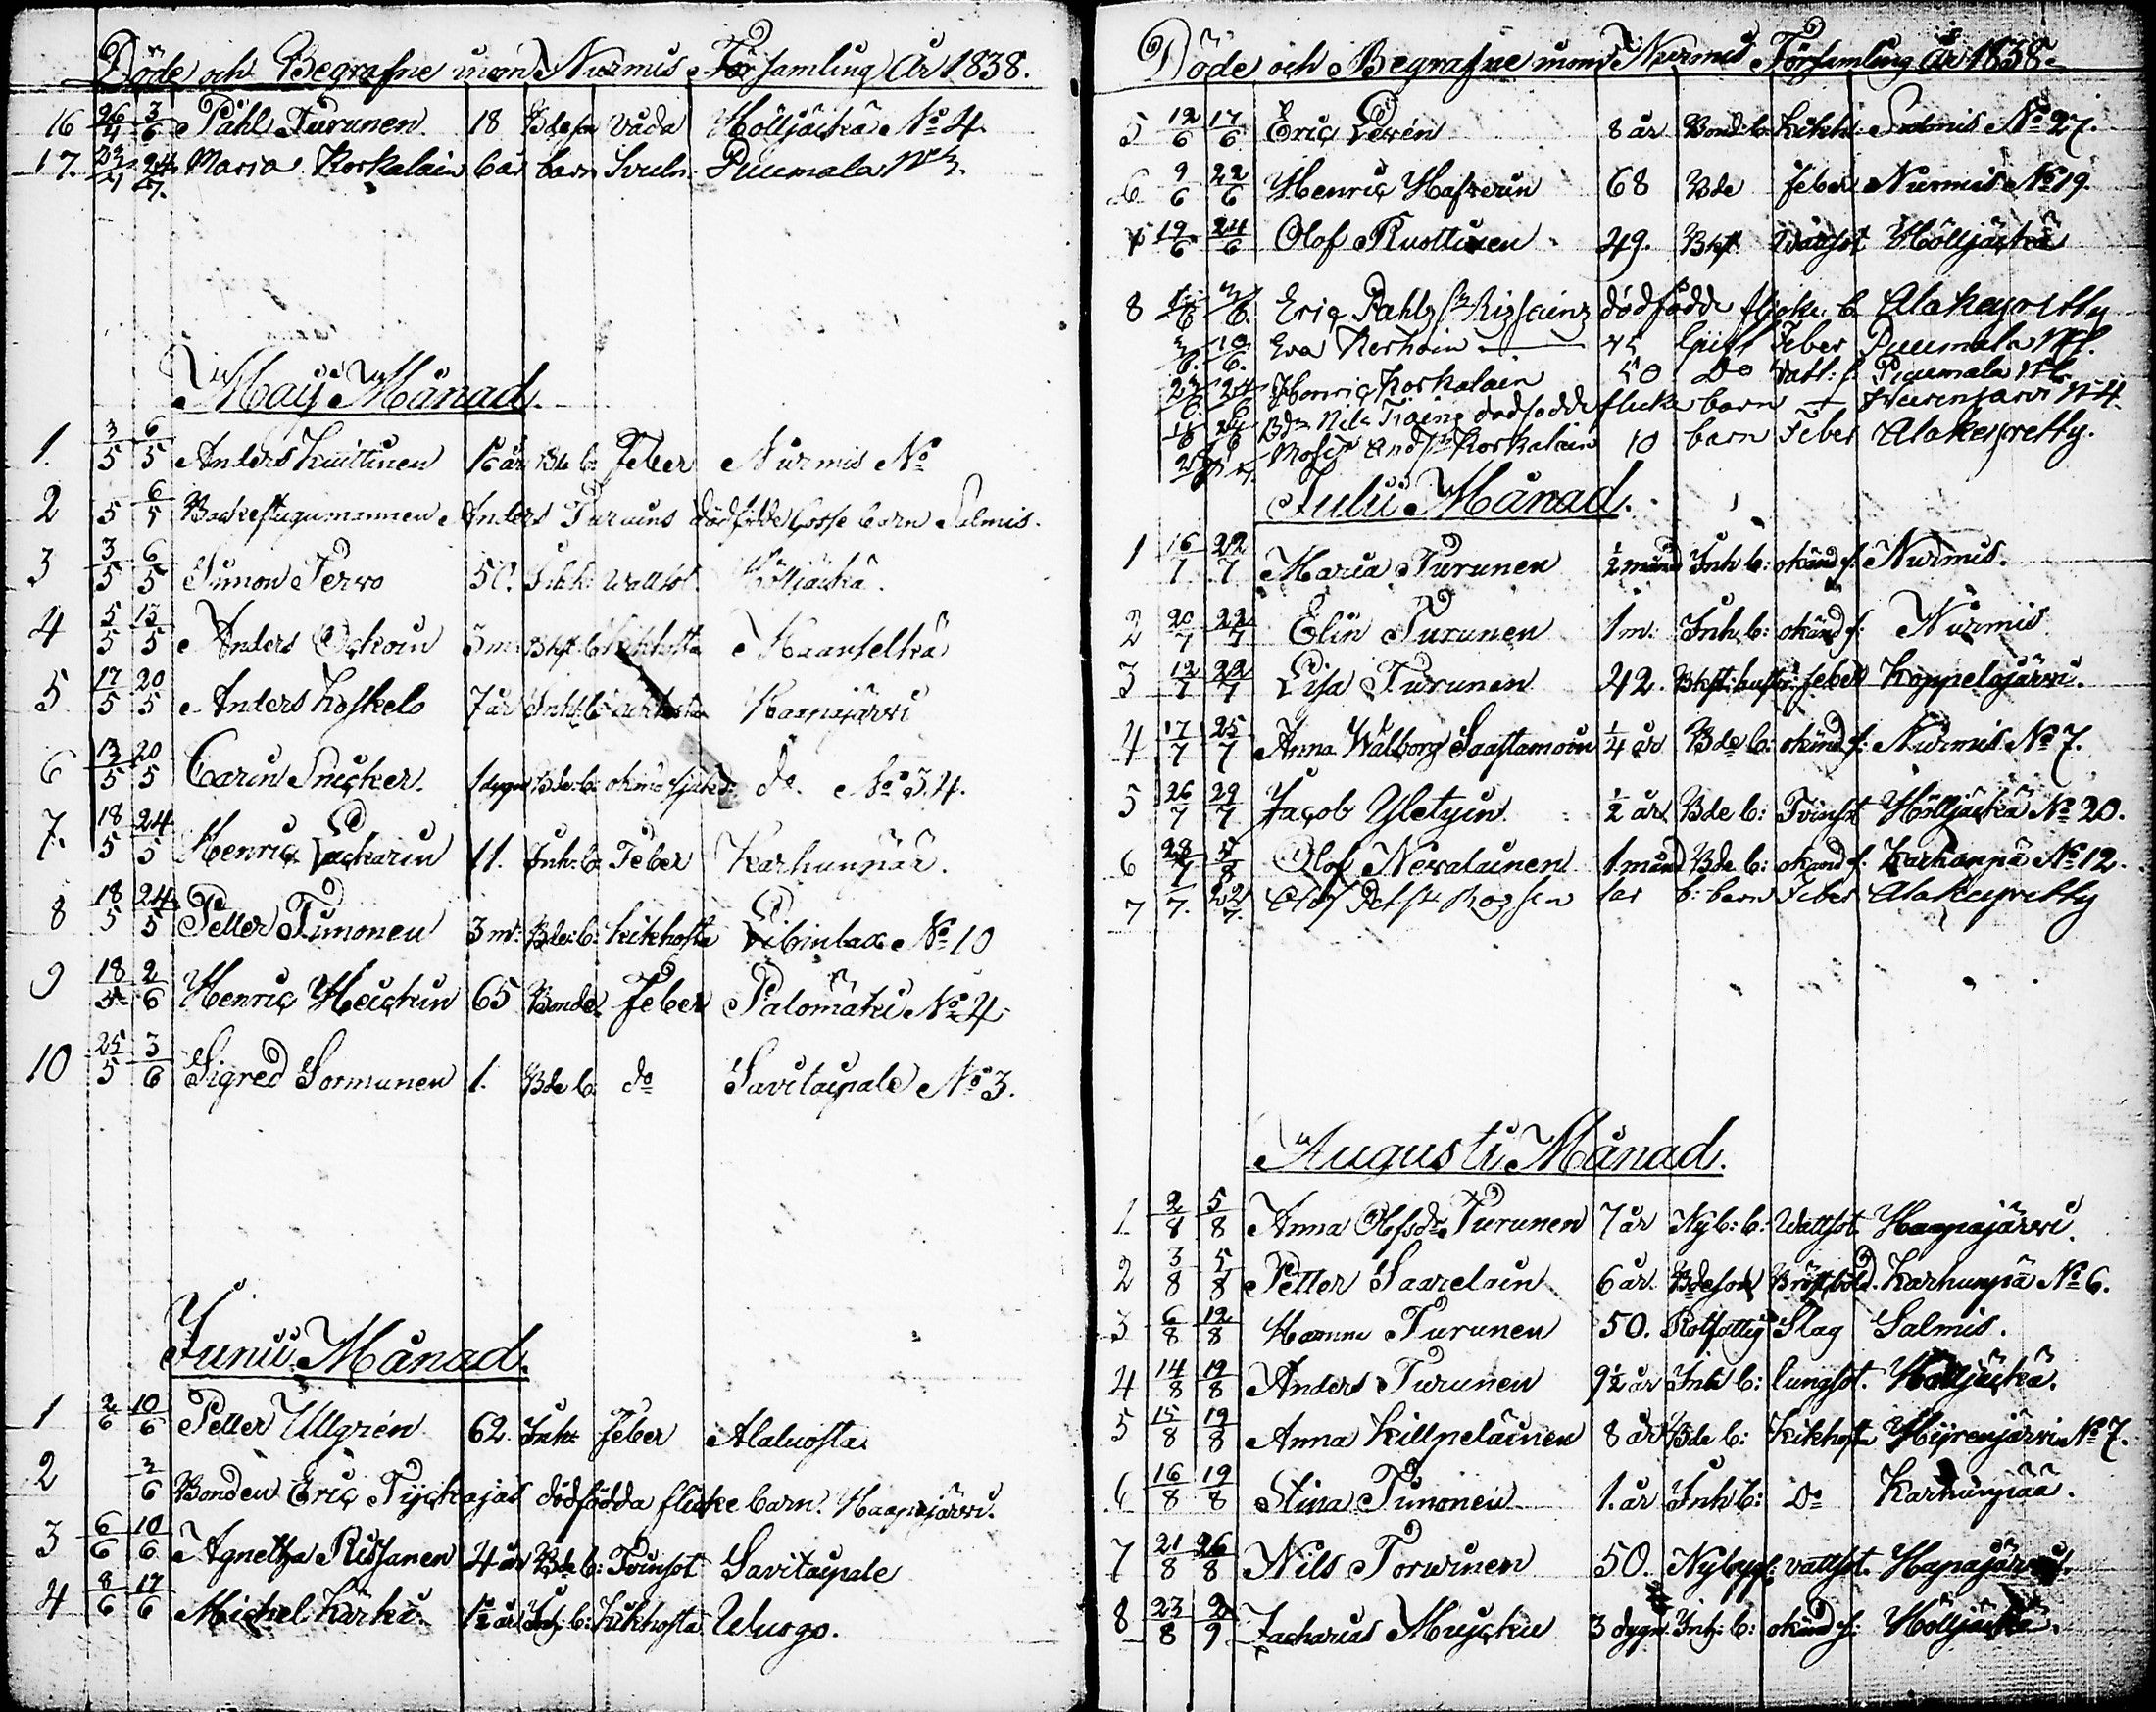 Döde och Begrafne inom Nurmis Församling År 1838.
16 26/4 3/6 Påhl Turunen 18 Bdesn våda Höljäckä No 4
17. 24/7. Maria Korkalain 6 år barn Puumala No 3.
Maij Månad.
1. 3/5 6/5 Anders Kuittinen Bde b: Feber Nurmis No
2 5 6/5 Backestugumannen Anders Turuins dödfödde Gosse barn Salmis.
3 3/5 6/5 Simon Tervo 50. Wattsot Höljäckä.
4 5/5 13/5 Anders Ockoin 3 m: Bkst: b Kikhosta
5 17/5 20/5 Anders Koskelo 7 år Inh: b: kikhosta Haapajärvi
6 13/5 20/5 Carin Snicker. 1 dygn Bde: b: okänd sjukd: do No 34.
7. 18/5 24/5 Henric Lackarin 11. Inh: b: Feber Karhunpää.
8 18/5 24/5 Petter Timonen 3 m: Bde: b: kikhosta No 10
9 18/5 2/6 Henric Heickin 65 Bonde Feber Palomäki No 4
10 25/5 3/6 Sigred Sormunen 1. Bde b: do Savitaipale No 3.
Junii Månad.
1 2/6 10/6 Petter Ullgrén 62. Inh: Feber Alaluosta
2 3/6 Bonden Eric Tyckajas dödfödda flicke barn. Haapajärvi.
3 6/6 10/6 Agnetha Rissanen 4 år Bde b: Tvinsot Savitaipale
4 8/6 17/6 Michel Kärki. 1½ år Inh: b: kikhosta
Döde och Begrafne inom Nurmis Församling År 1838.
5 12/6 17/6 Eric Levén 8 år Bond: b: kikh: Salmis No 27.
6 9/6 22/6 Henric 68 Bde feber Nurmis No 19.
7 19/6 24/6 Olof Ruottinen 49. Bkst: Wattsot Höljäckä
8 Eric Pahls dödfödde flicke b. Alakeyritty
10/6. Eva Kerhoin 45 Feber Puumala
23/6. 24/6 Henric Korkalain 50 Do Vatt: s. Puumala
Bdn Nils dödfödde flicke barn No 4.
Korkalain 10 barn Feber Alakeyretty.
Julii Månad.
1 16/7 22/7 Maria Turunen ½ månd Inh b: okänd s: Nurmis.
2 20/7 22/7 Elin Turunen 1 m: Inh. b: okänd s: Nurmis
3 12/7 22/7 Lisa Turunen 42. Bkst: hustr: feber Koppelojärvi.
4 17/7 25/7 Anna Walborg Saastamoin ¼ år Bde b: okänd s: Nurmis No 7.
5 26/7 29/7 Jacob Yletyin ½ år Bde b: Tvinsot Höljäckä No 20.
6 28/7 Olof Nevalainen 1 månd Bde b: okänd s: Karhunpä No 12.
7 7. 22/7. Olof b: barn Feber Alakeyretty
Augusti Månad.
1 2/8 5/8 Anna Olfsdr Turunen 7 år Nyb: b: Wattsot Haapajärvi.
2 3/8 5/8 Petter Saarelain 6 år. Bdeson Bröstböld. Karhunpä No 6.
3 6/8 12/8 Turunen 50. Rotfattig Slag Salmis.
4 14/8 19/8 Anders Turunen 9½ år Inh b: lungsot. Höljäckä.
5 15/8 19/8 Anna Killpeläinen 8 år Bde b: kikhosta Hijrenjärvi No 7.
6 16/8 19/8 Stina Timonen 1. år Inh b: Do Karhunpää.
7 21/8 26/8 Nils Torwinen 50. Nybygg: vattsot. Hapajärvi.
8 23/8 2/9 Zacharias Muycku 3 dygn Inh: b: okänd s: Höljäckä.